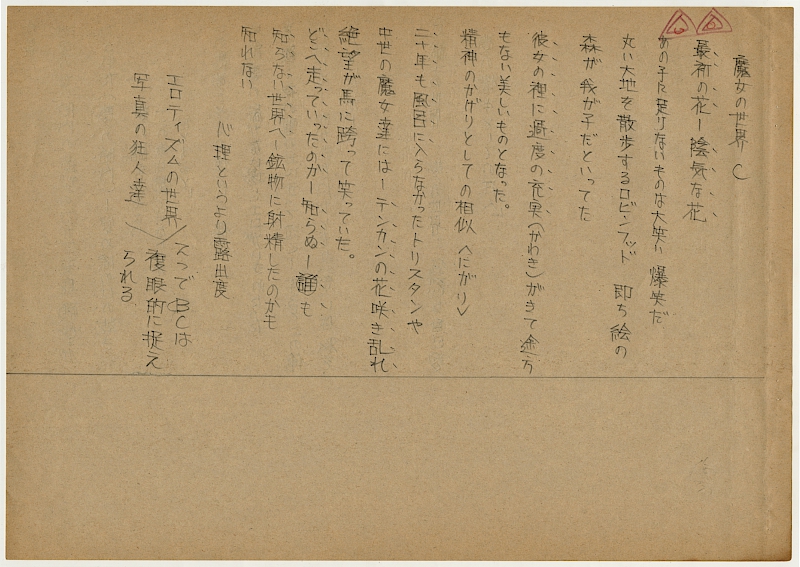 魔女の世界 C
最術の花ー陰気な花
あの子に足りないものは大笑い 爆笑だ
丸い大地を散歩するロビンフッド 即ち絵の
森が我が子だといってた
彼女の裡に過度の充実(かわき)がきて途方
もない美しいものとなった。
精神のかげりとしての相似〈にがり〉
二十年も風呂に入らなかったトリスタンや
中世の魔女達にはーテンカンの花咲き乱れ
絶望が馬に跨って笑っていた。
どこへ走っていったのかー知らぬー誰も
知らない世界へー鉱物に射精したのかも
知れない
心理というより露出度
エロティズムの世界
写真の狂人達
スつでBCは
複眼的に捉え
られる